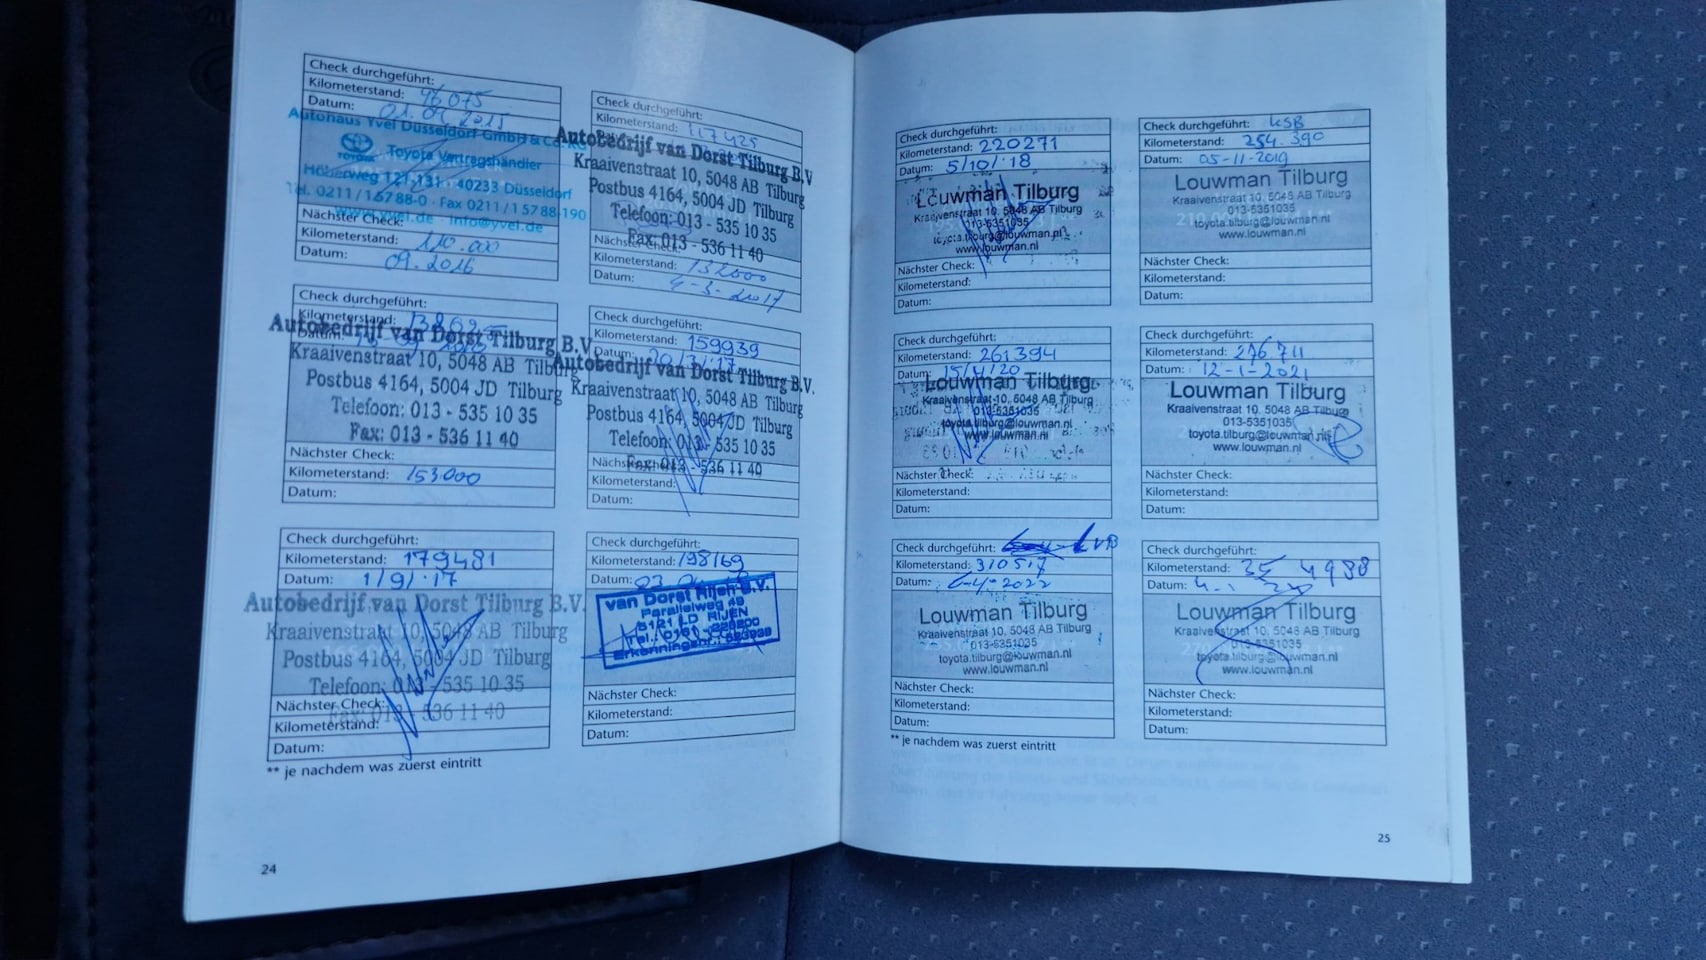 Check durchgeführt:
Kilometerstand: 96075
Datum: 01.09.2015
Autohaus Yvel Düsseldorf GmbH & Co. KG
TOYOTA
Toyota Vertragshändler
Höherweg 121-131 · 40233 Düsseldorf
Tel. 0211/15788-0 · Fax 0211/15788-190
www.yvel.de · info@yvel.de
Nächster Check:
Kilometerstand: 110.000
Datum: 09.2016
Check durchgeführt:
Kilometerstand: 117425
Autobedrijf van Dorst Tilburg B.V.
Kraaivenstraat 10, 5048 AB Tilburg
Postbus 4164, 5004 JD Tilburg
Telefoon: 013 - 535 10 35
Fax: 013 - 536 11 40
Nächster Check:
Kilometerstand: 132000
Datum: 4-3-2017
Check durchgeführt:
Kilometerstand:
Datum:
Autobedrijf van Dorst Tilburg B.V.
Kraaivenstraat 10, 5048 AB Tilburg
Postbus 4164, 5004 JD Tilburg
Telefoon: 013 - 535 10 35
Fax: 013 - 536 11 40
Nächster Check:
Kilometerstand: 153000
Datum:
Check durchgeführt:
Kilometerstand: 159939
Datum: 20/3/'17
Autobedrijf van Dorst Tilburg B.V.
Kraaivenstraat 10, 5048 AB Tilburg
Postbus 4164, 5004 JD Tilburg
Telefoon: 013 - 535 10 35
Fax: 013 - 536 11 40
Nächster Check:
Kilometerstand:
Datum:
Check durchgeführt:
Kilometerstand: 179481
Datum: 1/9/'17
Autobedrijf van Dorst Tilburg B.V.
Kraaivenstraat 10, 5048 AB Tilburg
Postbus 4164, 5004 JD Tilburg
Telefoon: 013 - 535 10 35
Fax: 013 - 536 11 40
Nächster Check:
Kilometerstand:
Datum:
Check durchgeführt:
Kilometerstand: 198169
Datum: 03
van Dorst Rijen B.V.
Parallelweg 49
5121 LD RIJEN
Tel.: 0161
Erkenningsnr.:
Nächster Check:
Kilometerstand:
Datum:
** je nachdem was zuerst eintritt
24
Check durchgeführt:
Kilometerstand: 220271
Datum: 5/10/'18
Louwman Tilburg
Kraaivenstraat 10, 5048 AB Tilburg
013-5351035
toyota.tilburg@louwman.nl
www.louwman.nl
Nächster Check:
Kilometerstand:
Datum:
Check durchgeführt: KSB
Kilometerstand: 254.390
Datum: 05-11-2019
Louwman Tilburg
Kraaivenstraat 10, 5048 AB Tilburg
013-5351035
toyota.tilburg@louwman.nl
www.louwman.nl
Nächster Check:
Kilometerstand:
Datum:
Check durchgeführt:
Kilometerstand: 261.394
Datum: 15/4/20
Louwman Tilburg
Kraaivenstraat 10, 5048 AB Tilburg
013-5351035
toyota.tilburg@louwman.nl
www.louwman.nl
Nächster Check:
Kilometerstand:
Datum:
Check durchgeführt:
Kilometerstand: 276.711
Datum: 12-1-2021
Louwman Tilburg
Kraaivenstraat 10, 5048 AB Tilburg
013-5351035
toyota.tilburg@louwman.nl
www.louwman.nl
Nächster Check:
Kilometerstand:
Datum:
Check durchgeführt:
Kilometerstand: 310517
Datum: 6-4-2022
Louwman Tilburg
Kraaivenstraat 10, 5048 AB Tilburg
013-5351035
toyota.tilburg@louwman.nl
www.louwman.nl
Nächster Check:
Kilometerstand:
Datum:
Check durchgeführt:
Kilometerstand: 354988
Datum:
Louwman Tilburg
Kraaivenstraat 10, 5048 AB Tilburg
013-5351035
toyota.tilburg@louwman.nl
www.louwman.nl
Nächster Check:
Kilometerstand:
Datum:
** je nachdem was zuerst eintritt
25